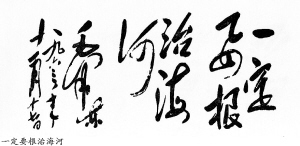 一定
要根
治海
河
毛泽东
一九六三年
十一月十七日
一定要根治海河